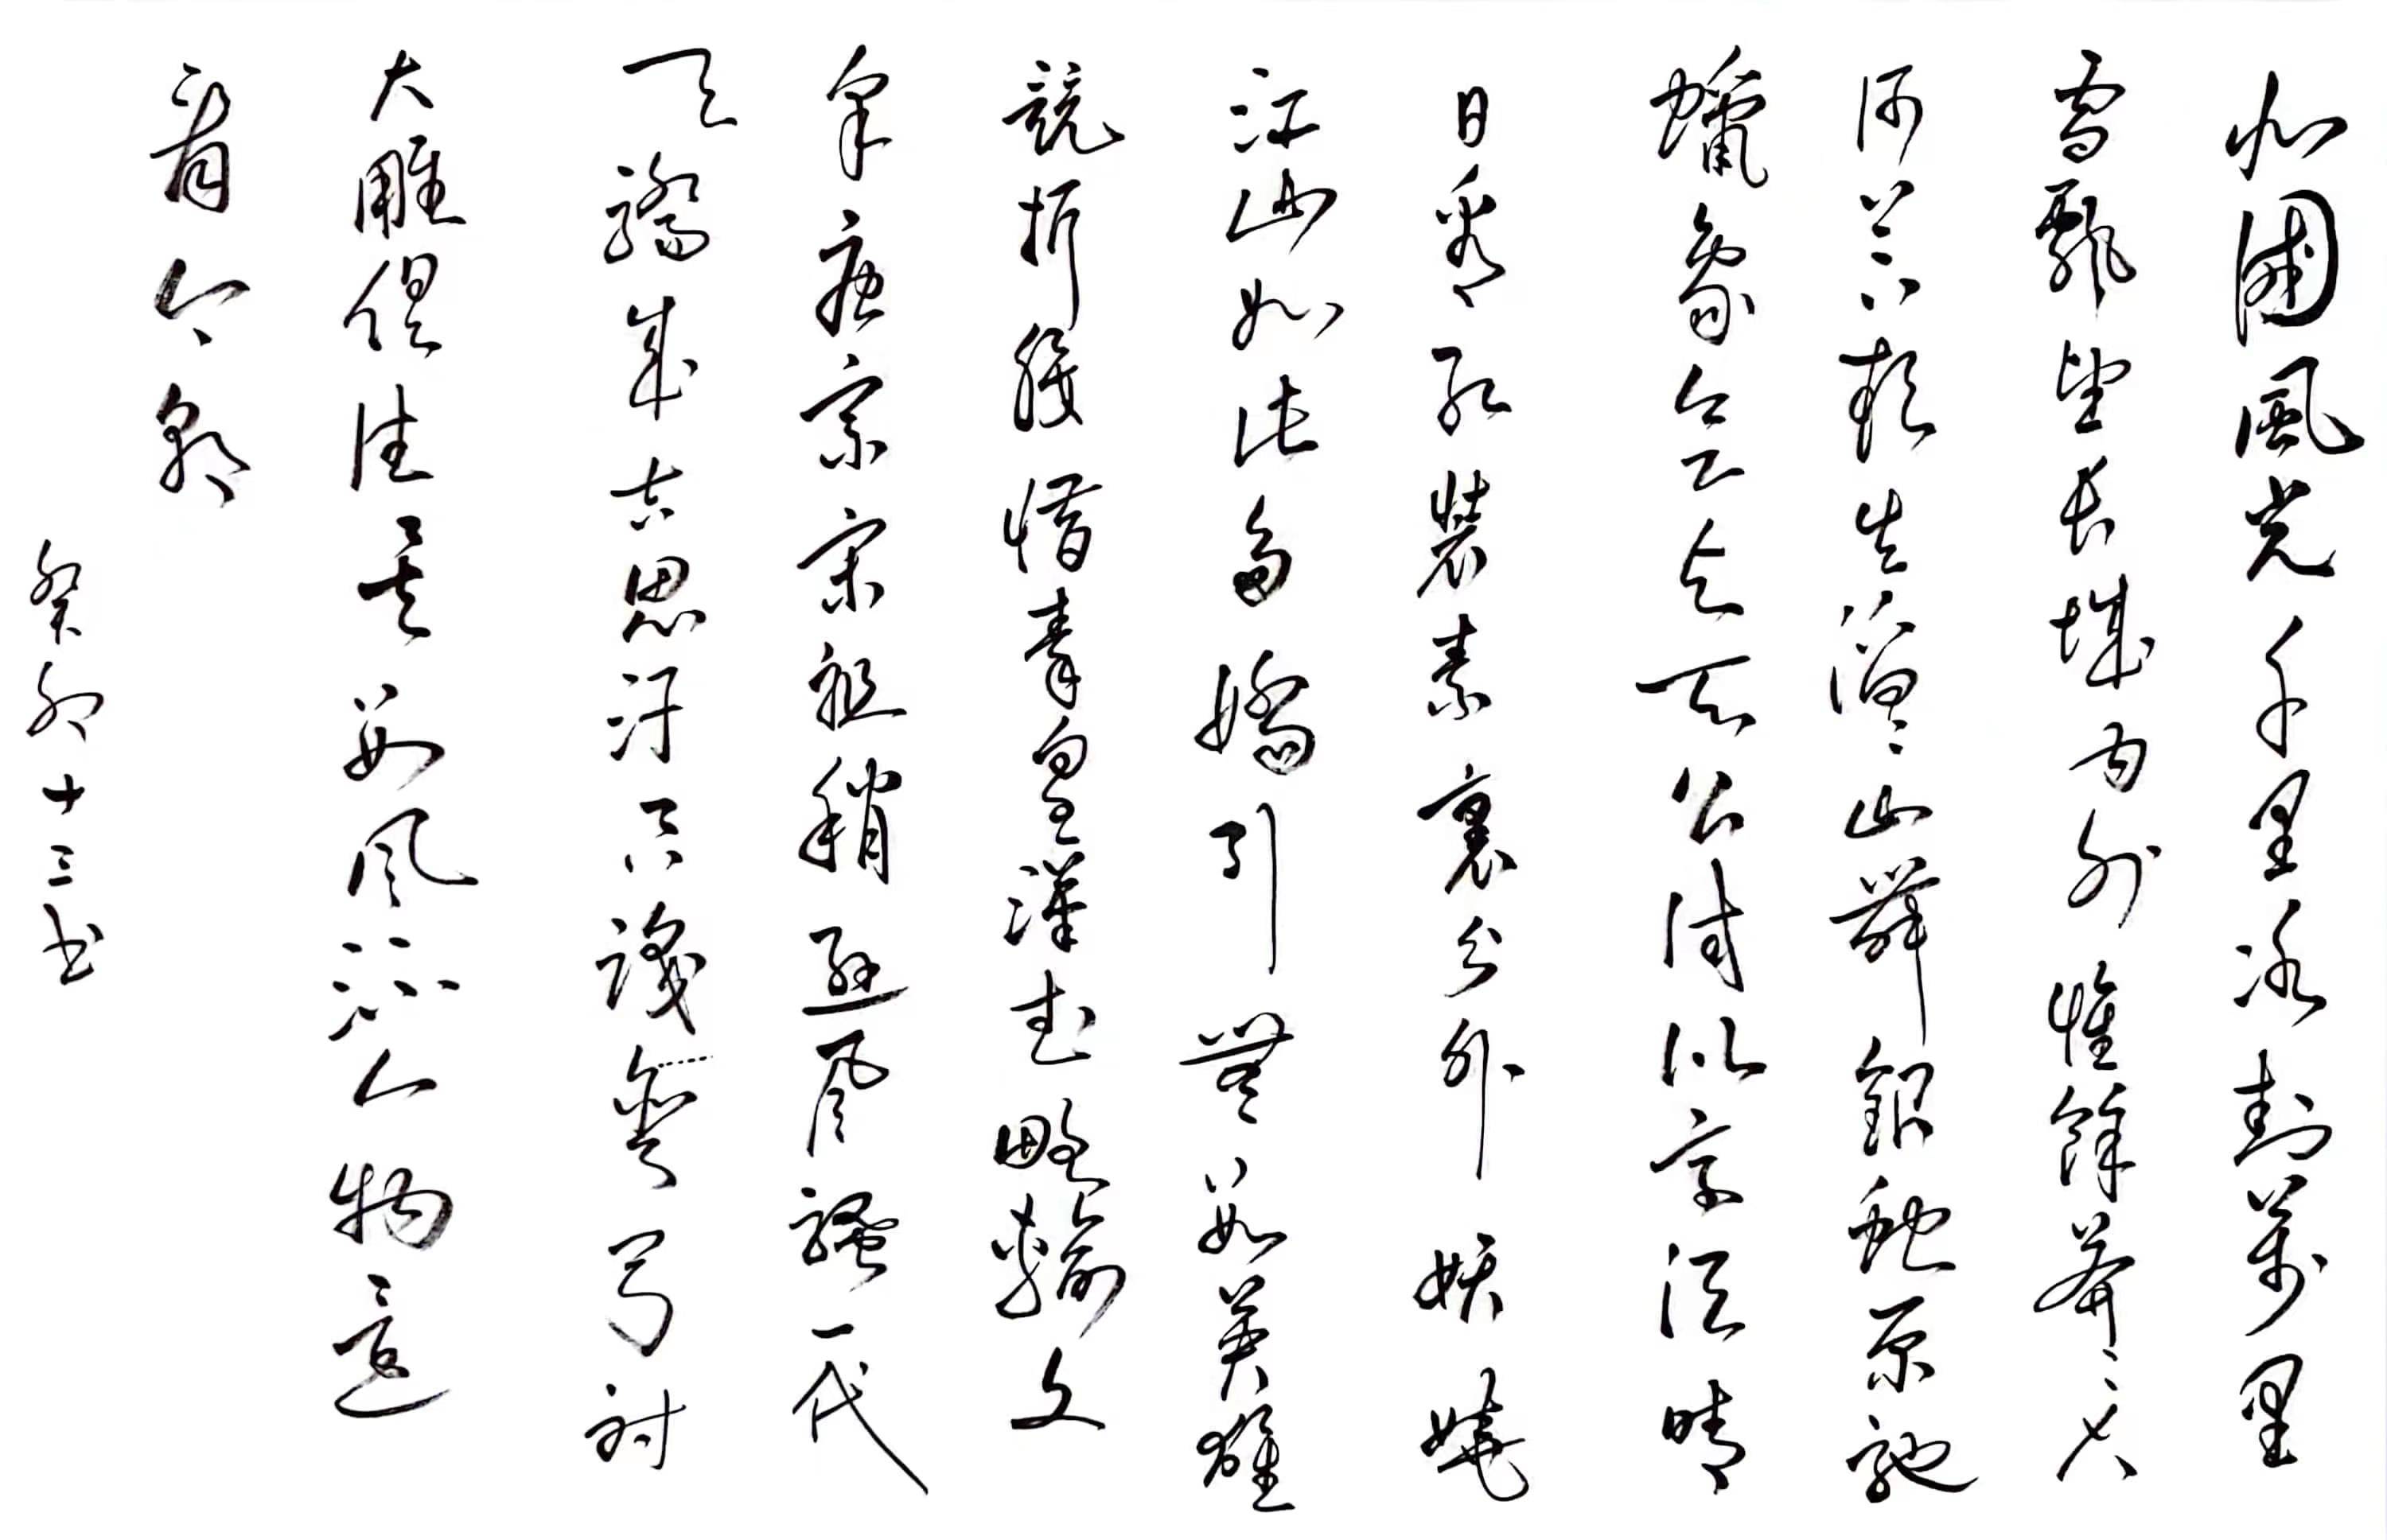 北國風光千里冰封萬里
雪飄望長城內外惟餘莽々大
河上下頓失滔々山舞銀蛇原馳
蠟象欲與天公試比高須晴
日看紅裝素裹分外妖嬈
江山如此多嬌引無數英雄
競折腰惜秦皇漢武略輸文
采唐宗宋祖稍遜風騷一代
天驕成吉思汗只識彎弓射
大雕俱往矣數風流人物還
看今朝
癸卯十三书